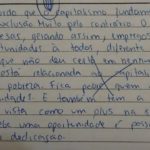 que o capitalismo, fundam
clusão. Muito pelo contrário. O
esas, gerando assim, empregos
tunidades à todos, diferente
que não deu certo em nenhum
está relacionada ao capital,
pobreza. Fica pequen quem
idades! E também tem a
vista como um plus na s
ebe uma oportunidade é possí
dedicação.